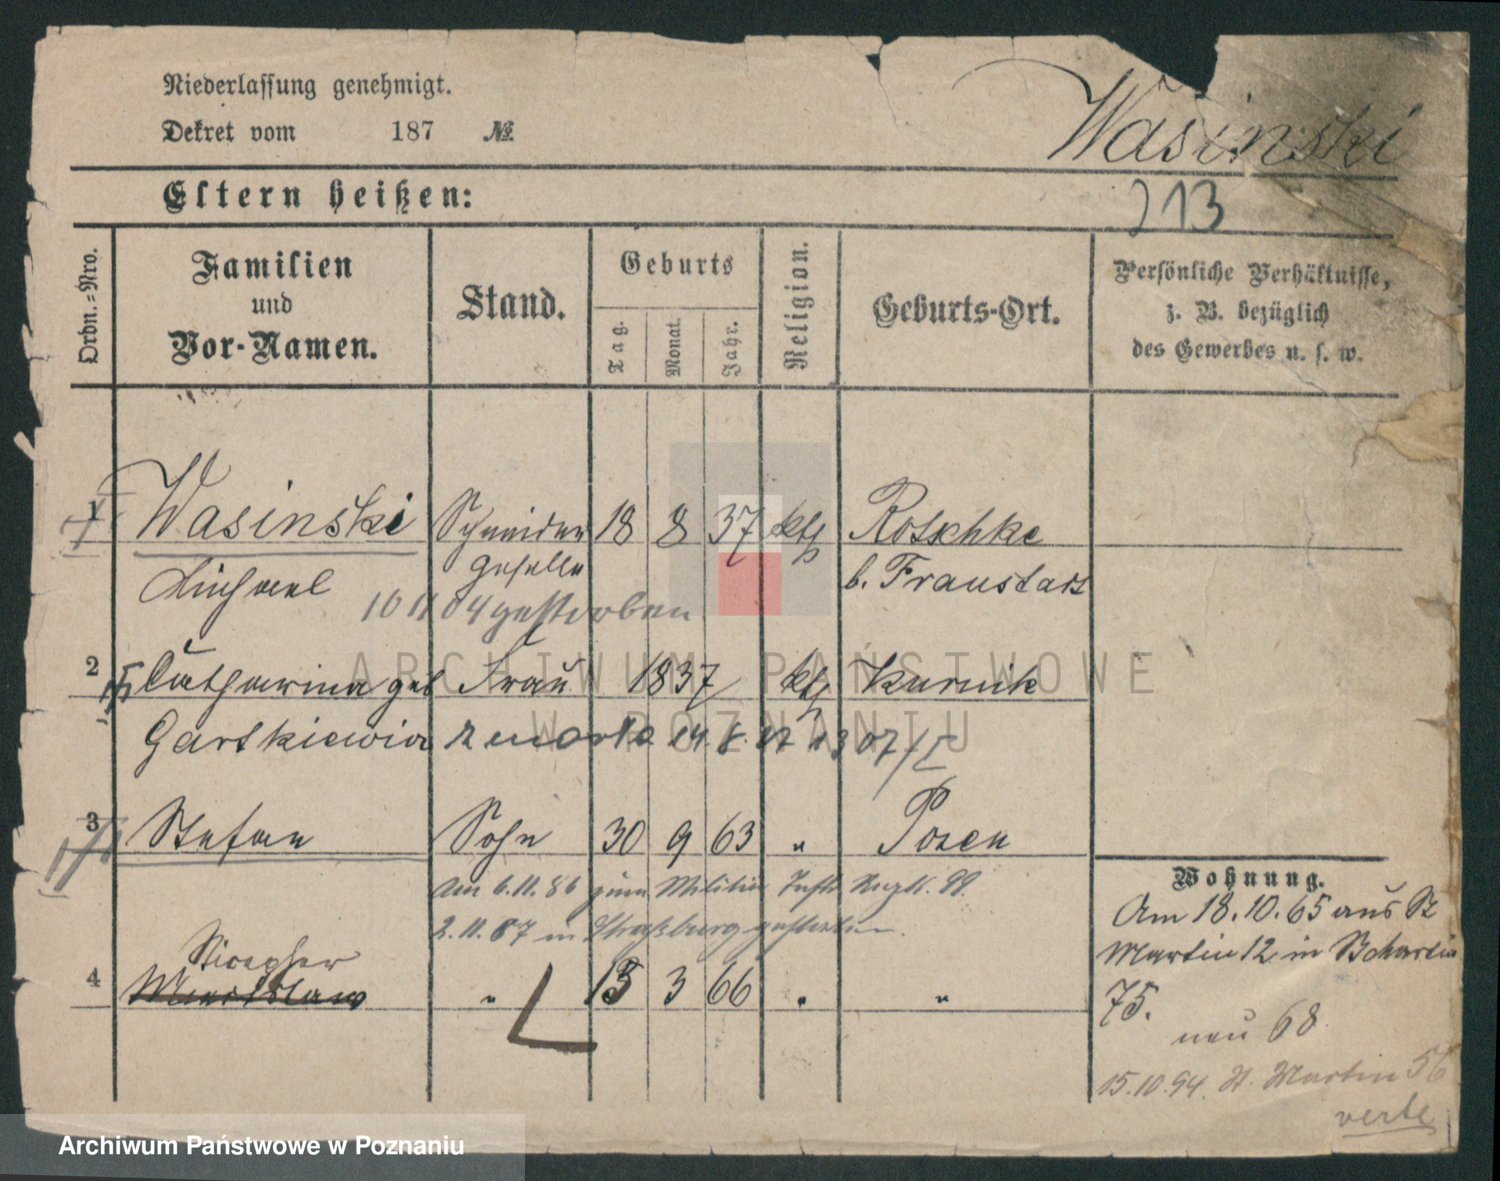 Niederlassung genehmigt.
Dekret vom 187 №
Wasinski
Eltern heißen:
213
Ordn.-Nro.
Familien und Vor-Namen.
Stand.
Geburts
Tag. Monat. Jahr.
Religion.
Geburts-Ort.
Persönliche Verhältnisse, z. B. bezüglich des Gewerbes u. s. w.
1 Wasinski Schneider 18 8 37 kth Rotschke
Michael Geselle b. Fraustadt
10 11 04 gestorben
2 Catharina geb Frau 1837 kth Kurnik
Gartkiewicz zmarła 14. 8.
3 Stefan Sohn 30 9 63 " Posen
am 6.11.86 zum Militär Inft. Regt. 99.
2.11.87 in Straßburg gestorben.
4 " 13 3 66 " "
Wohnung.
Am 18.10.65 aus St
Martin 12 in St Martin
75.
neu 68
15.10.94. St. Martin 56
verte
ARCHIWUM PAŃSTWOWE
W POZNANIU
Archiwum Państwowe w Poznaniu